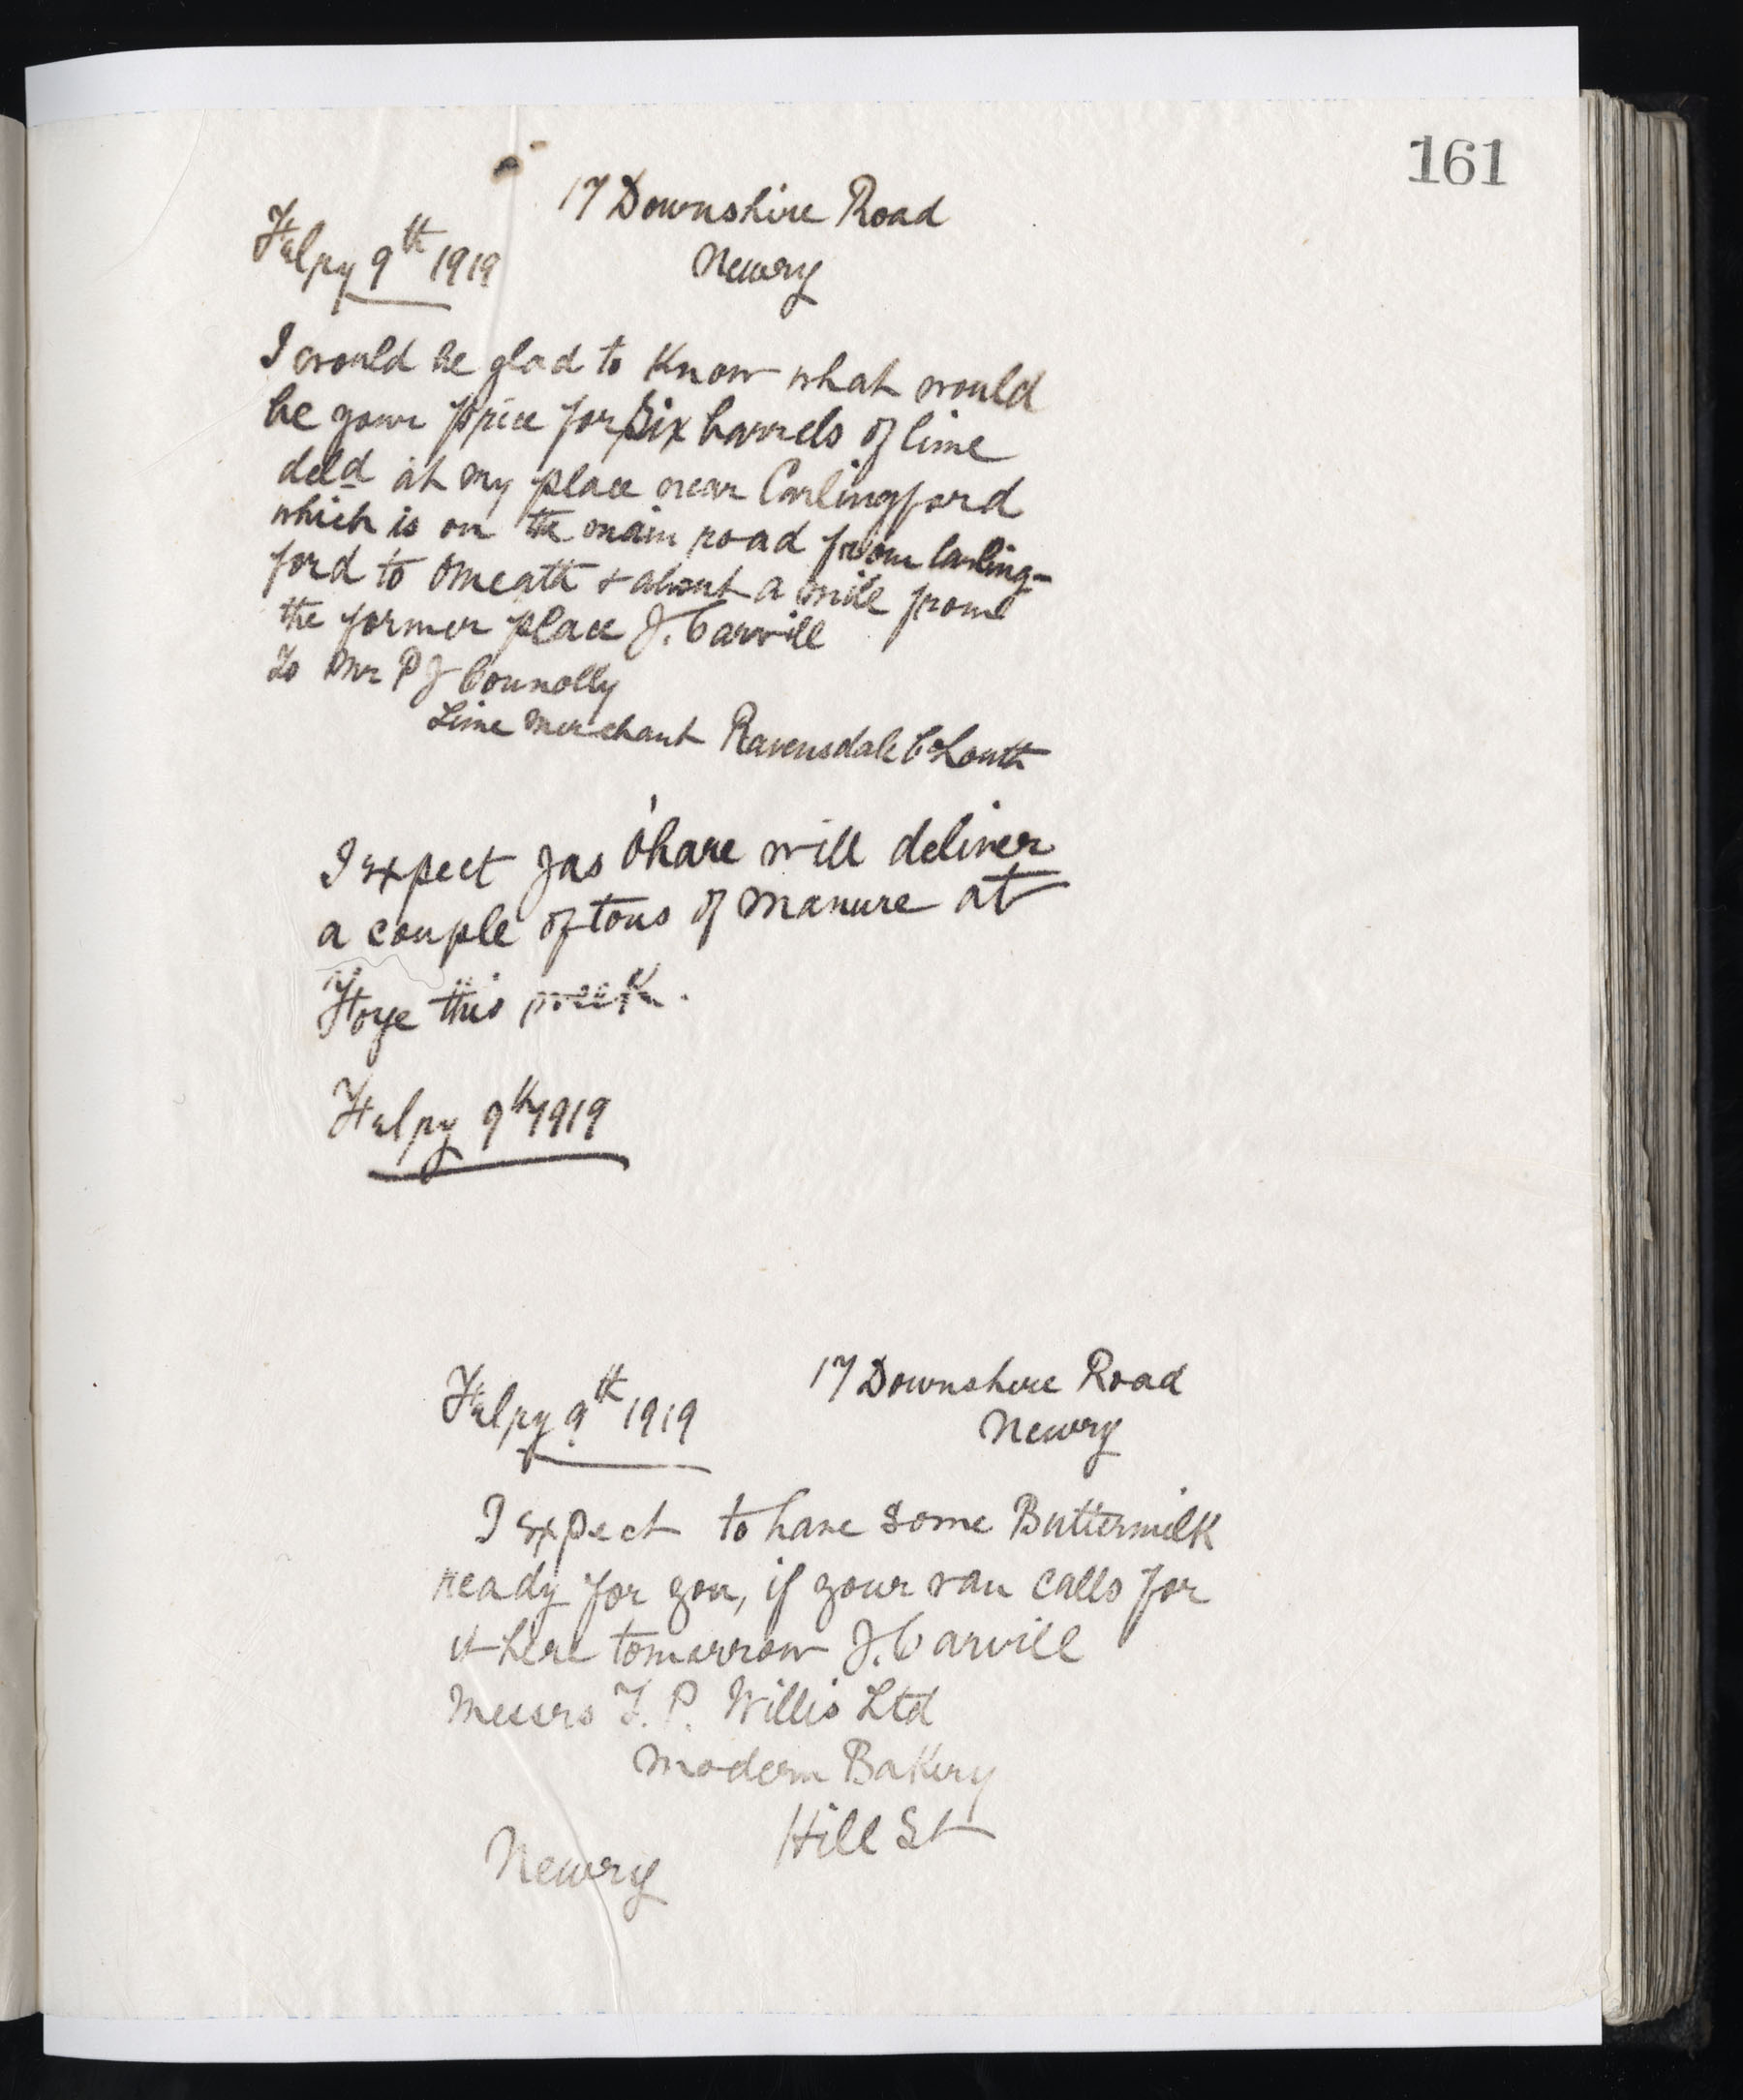 161
17 Downshire Road
Febry 9th 1919
Newry
I would be glad to know what would
be your price for Six barrels of lime
deld at my place near Carlingford
which is on the main road from Carling-
ford to Omeath & about a mile from
the former place J. Carvill
To Mr P J Connolly
Lime Merchant Ravensdale Co Louth
I expect Jas O'hare will deliver
a couple of tons of manure at
this week.
Febry 9th 1919
17 Downshire Road
Febry 9th 1919
Newry
I expect to have some Buttermilk
ready for you, if your van calls for
it here tomorrow J. Carvill
Messrs F. P. Willis Ltd
Modern Bakery
Hill St
Newry